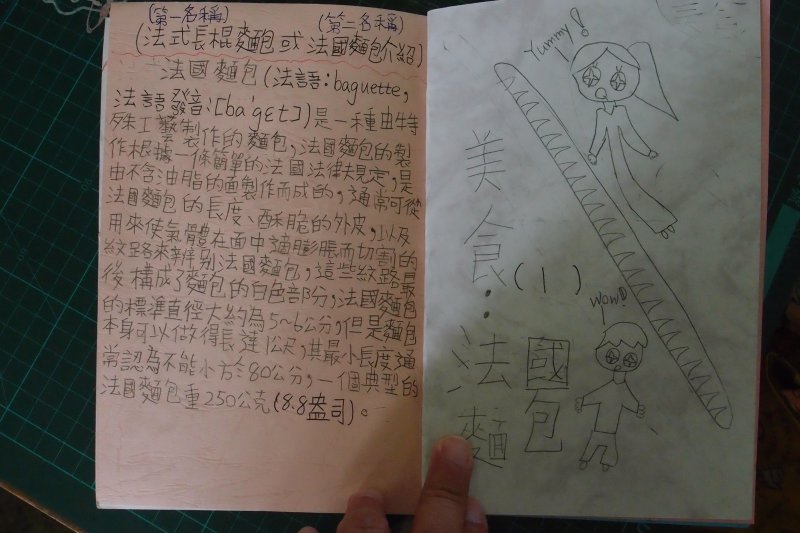 (第一名稱) (第二名稱)
(法式長棍麵包 或 法國麵包介紹)
法國麵包(法語:baguette,
法語發音:[ba'gɛt])是一種由特
殊工藝製作的麵包,法國麵包的製
作根據一條簡單的法國法律規定,是
由不含油脂的面製作而成的,通常可從
法國麵包的長度、酥脆的外皮,以及
用來使氣體在面中適膨脹而切割的
紋路來辨別法國麵包,這些紋路最
後構成了麵包的白色部分,法國麵包
的標準直徑大約為5~6公分,但是麵包
本身可以做得長達1公尺,其最小長度通
常認為不能小於80公分,一個典型的
法國麵包重250公克(8.8盎司)。
Yummy!
美食(1):
wow!
法國
麵包